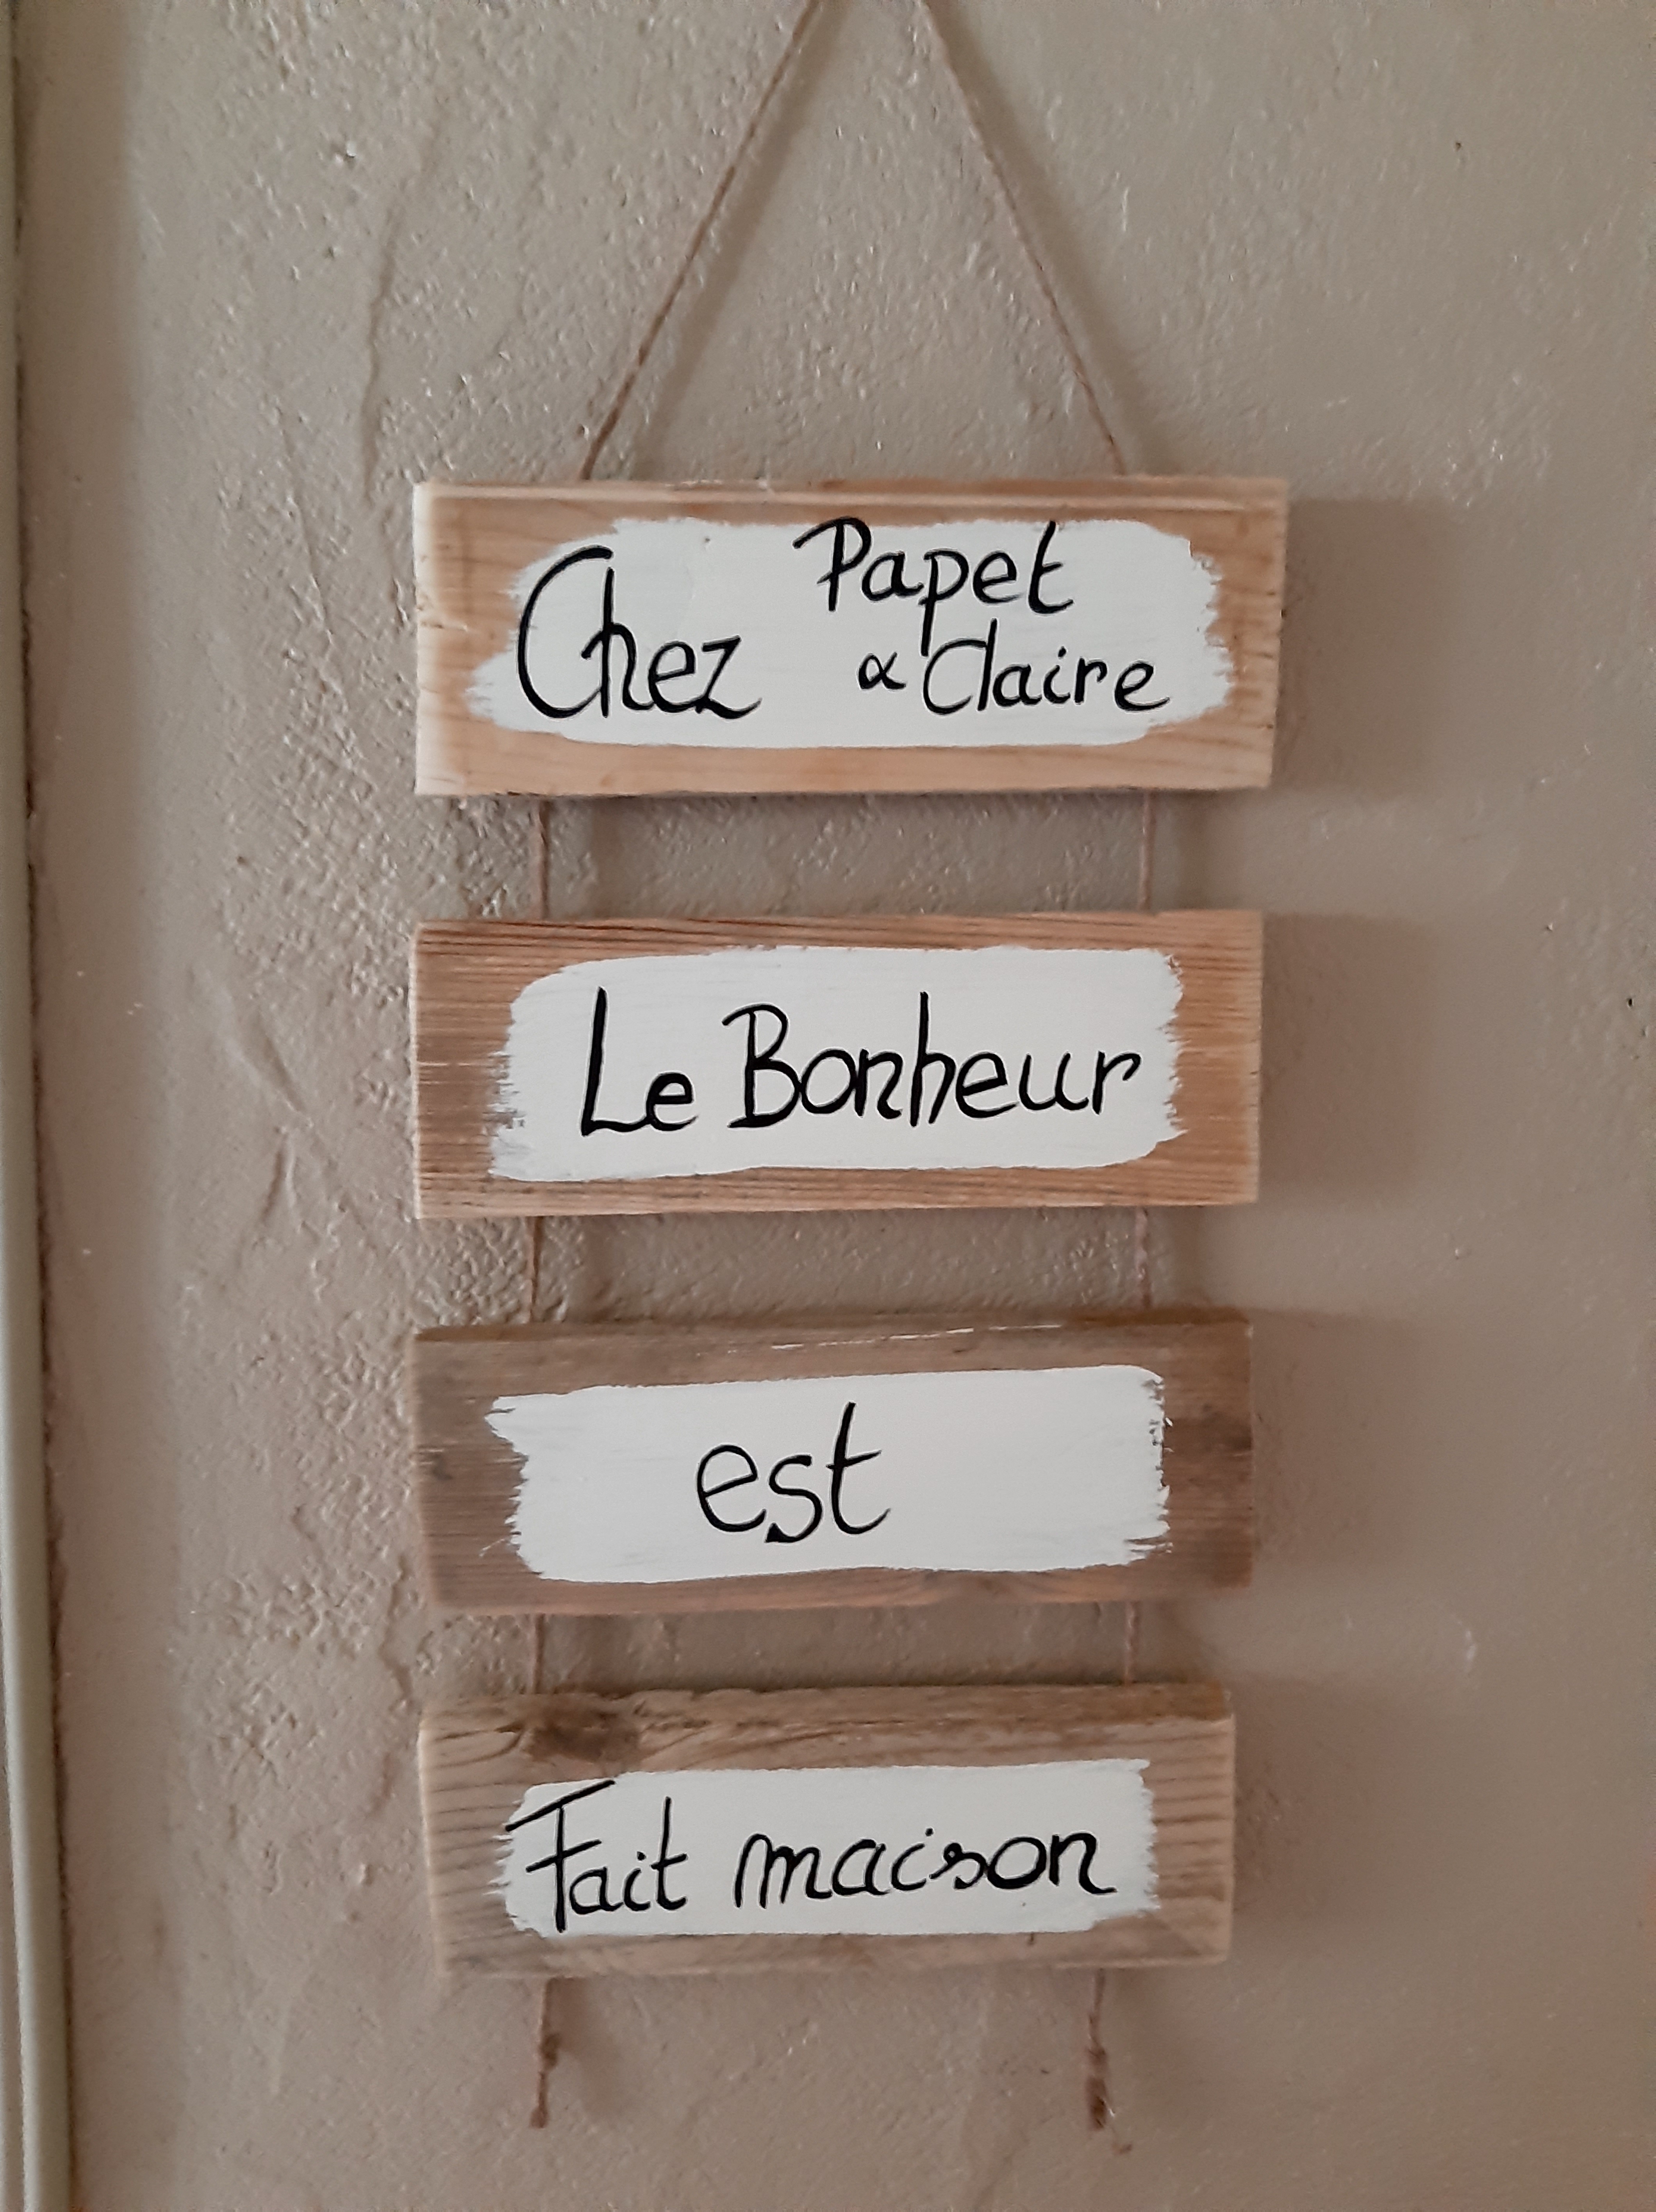 Chez Papet
& Claire
Le Bonheur
est
Fait maison